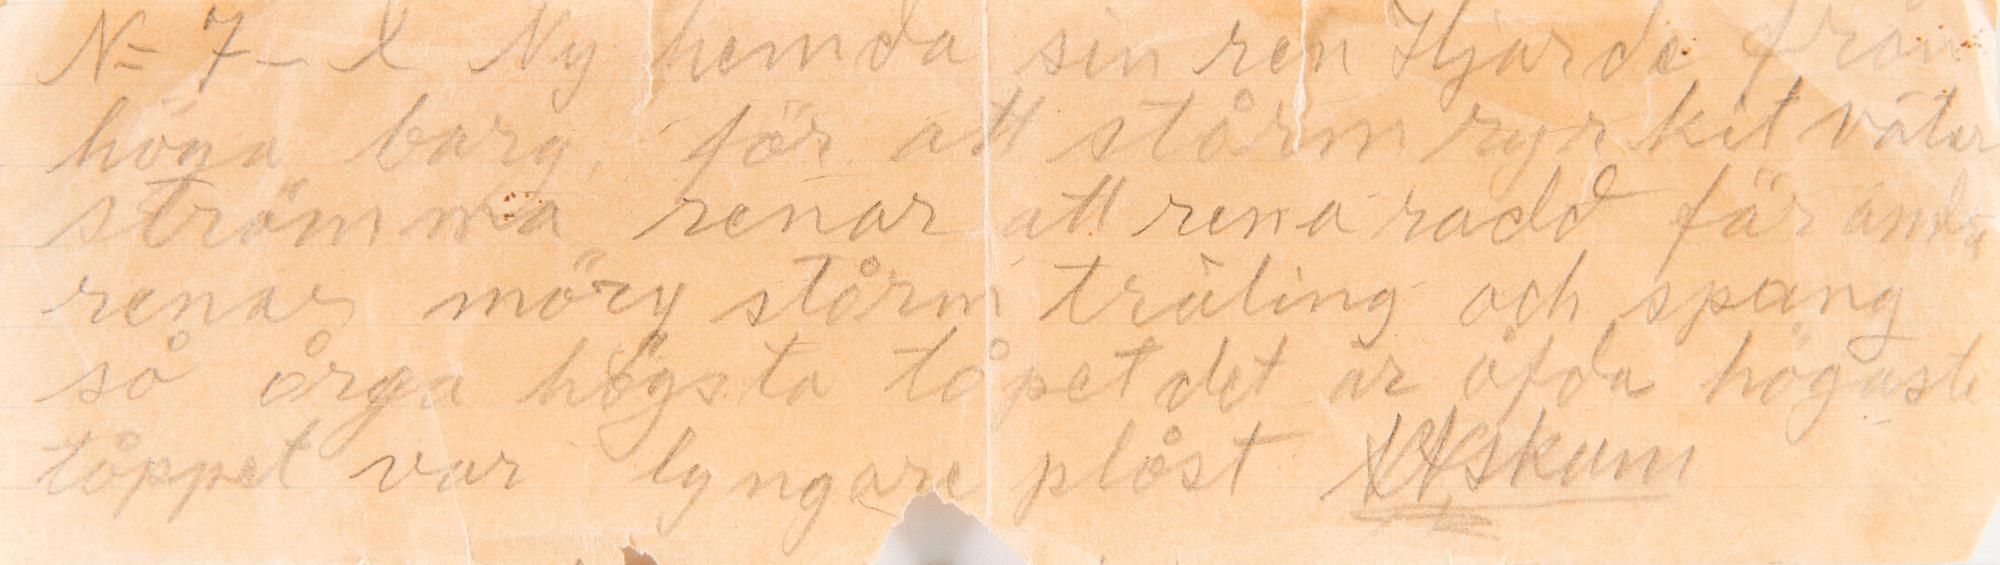 N= 7 - l Ny hemda sin ren Hjarde från
höga barg, för att stårm ryr kit våtar
strömma renar att rena radd får andra
renar möry stårm träling och spang
så årga högsta tåpet det är åfda högaste
tåppet var lyngare plåst Askum